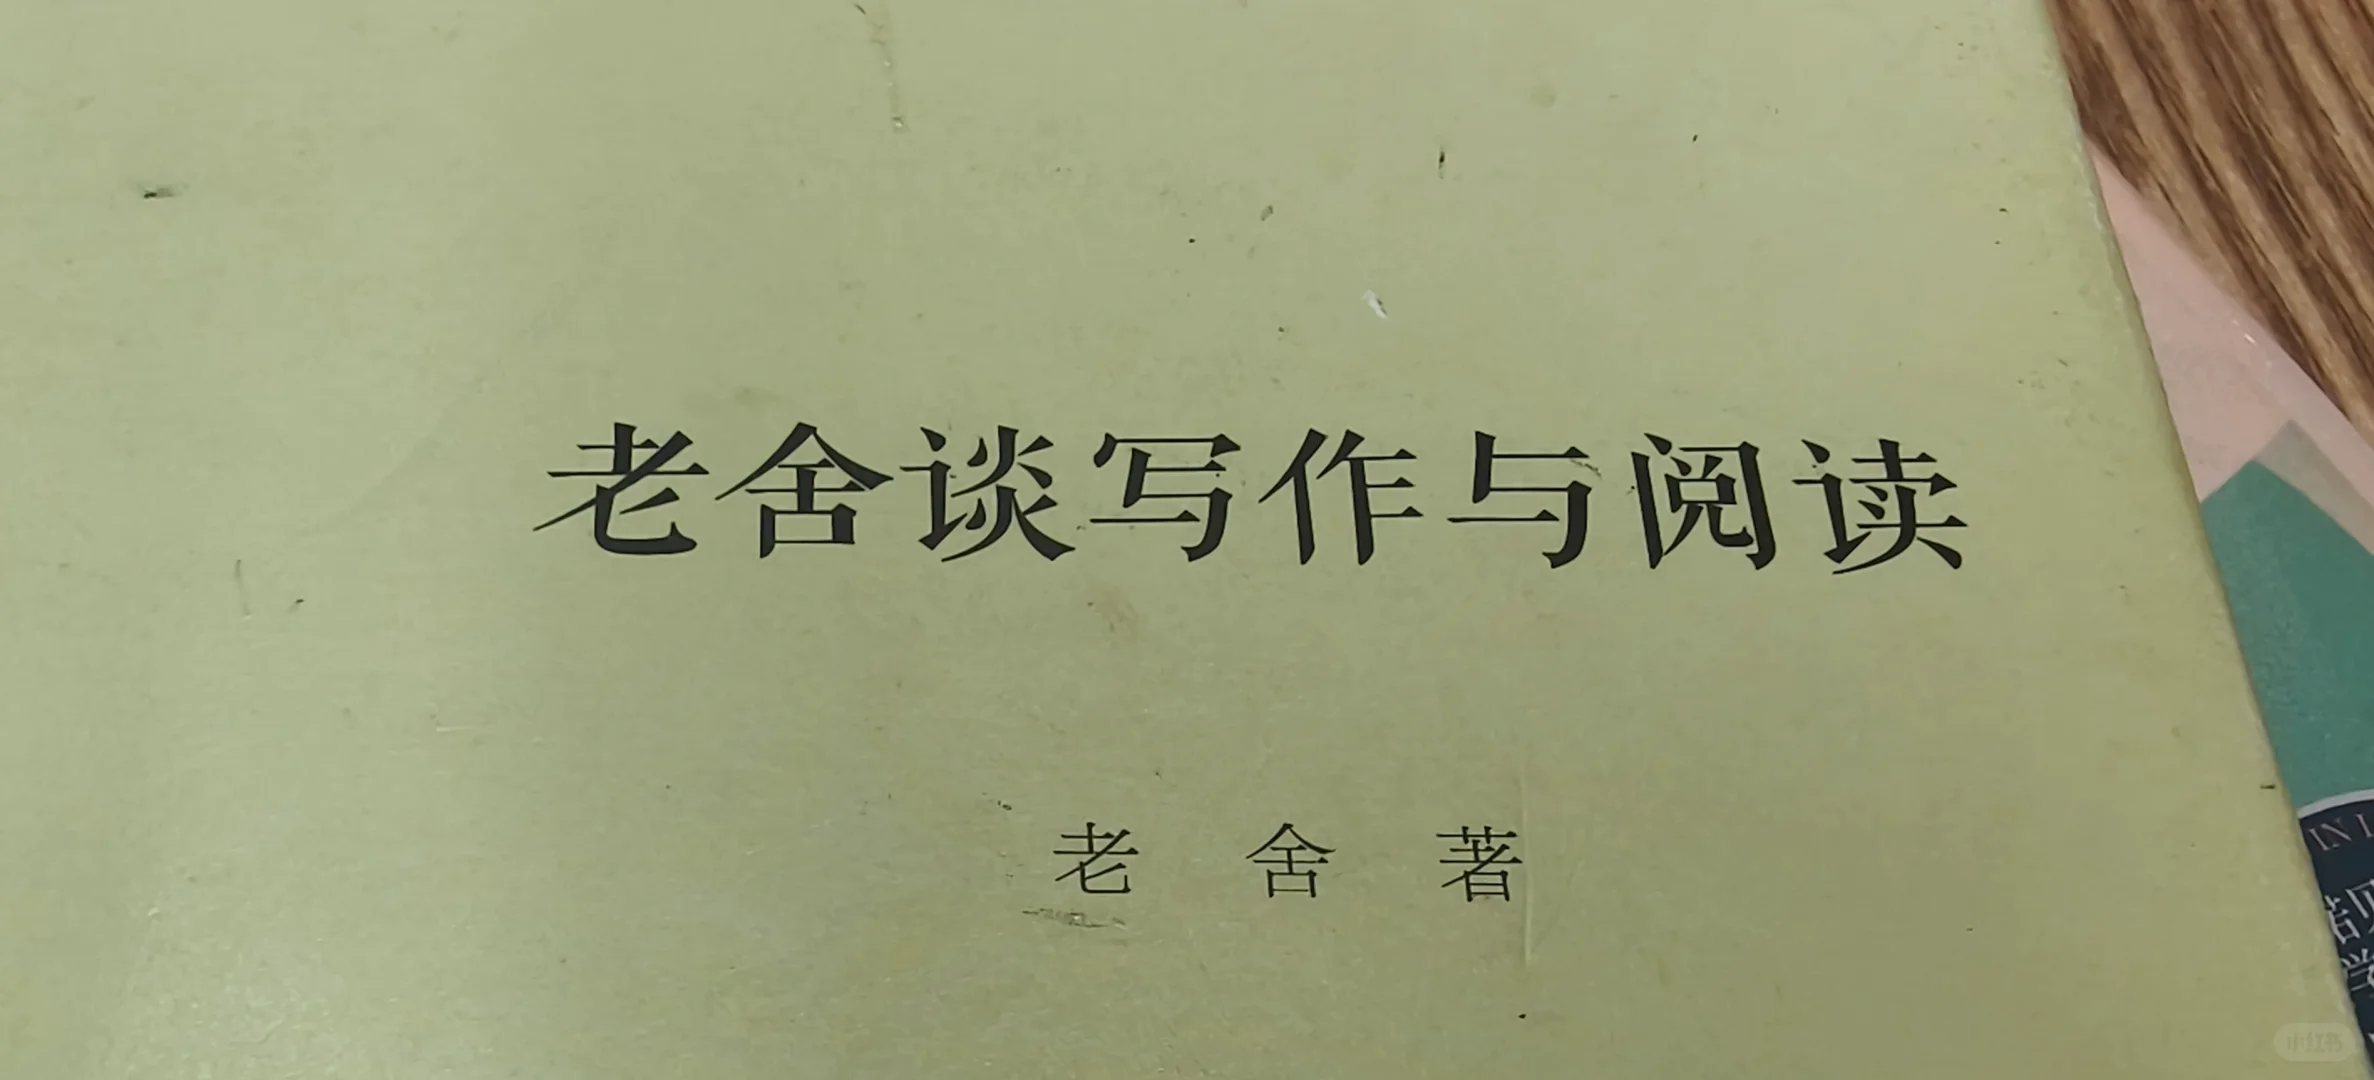 老舍谈写作与阅读
老 舍 著
IN
学
小红书